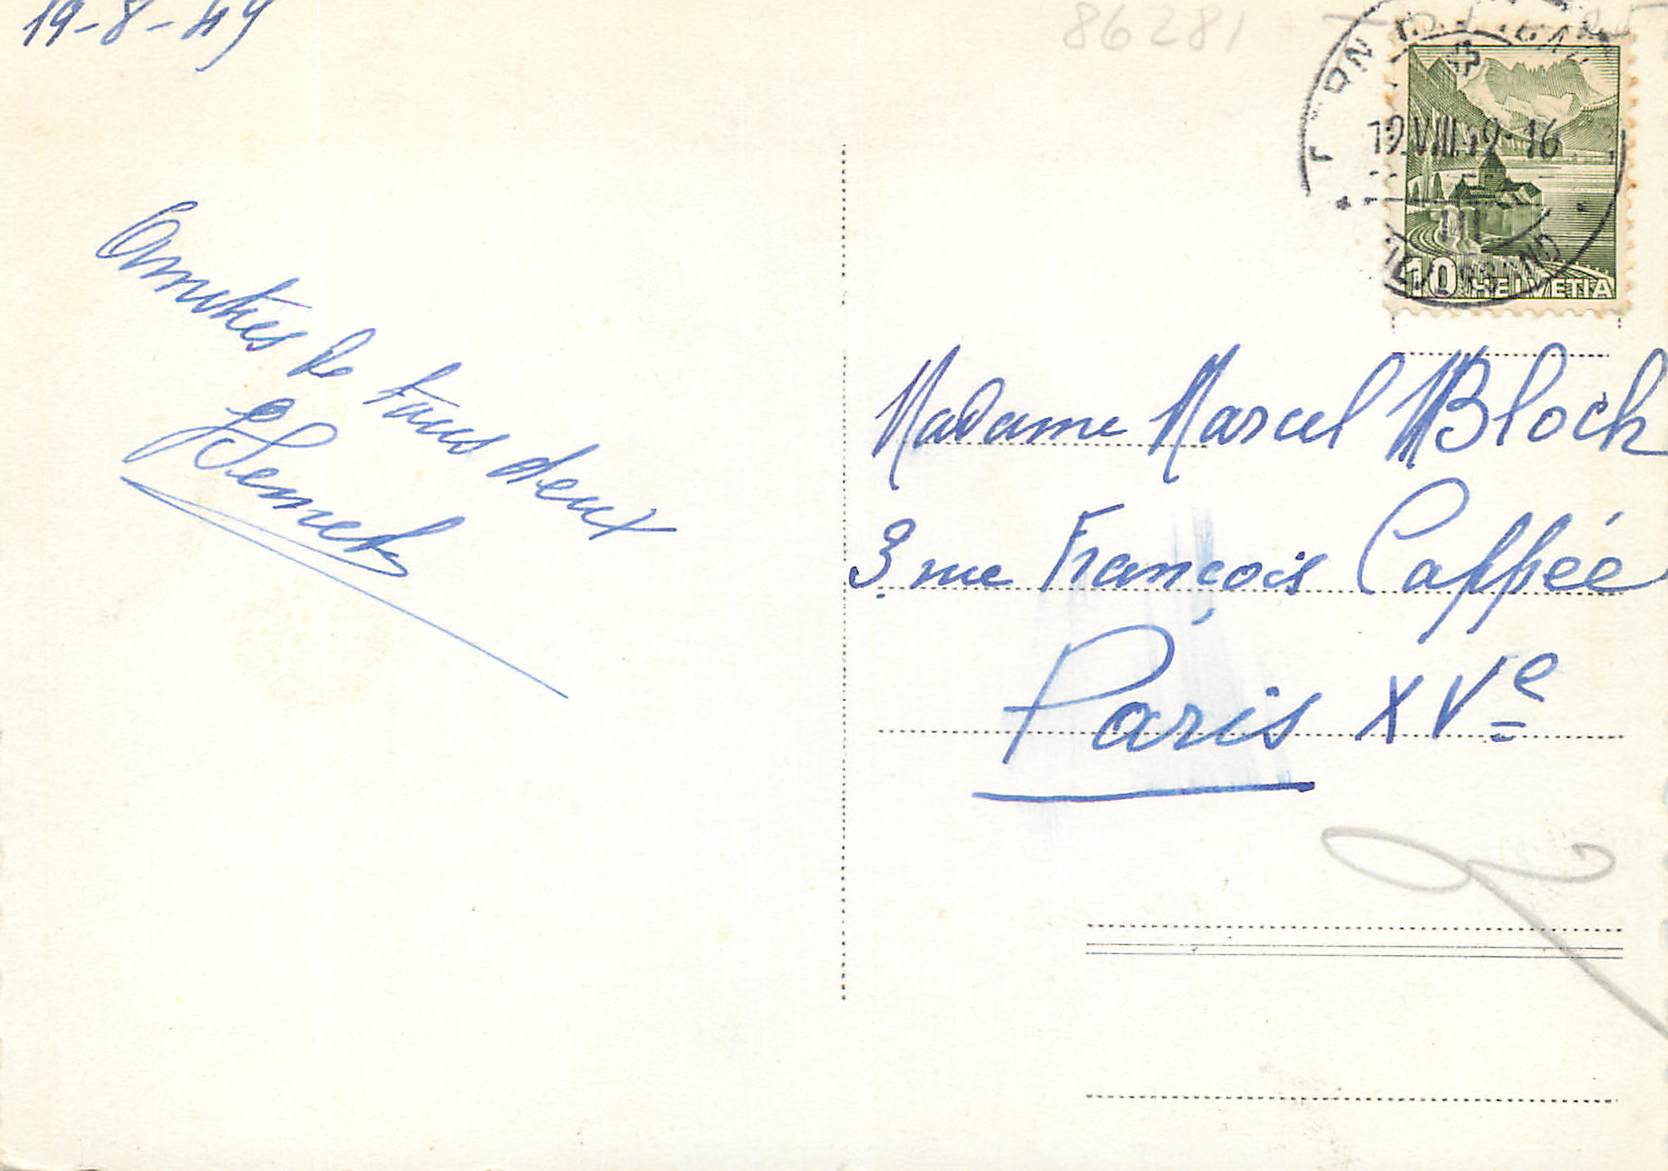 19-8-49
86281
19.VIII.49-16
III
10 HELVETIA
Amitiés de tous deux
Madame Marcel Bloch
3 rue François Coppée
Paris XVe